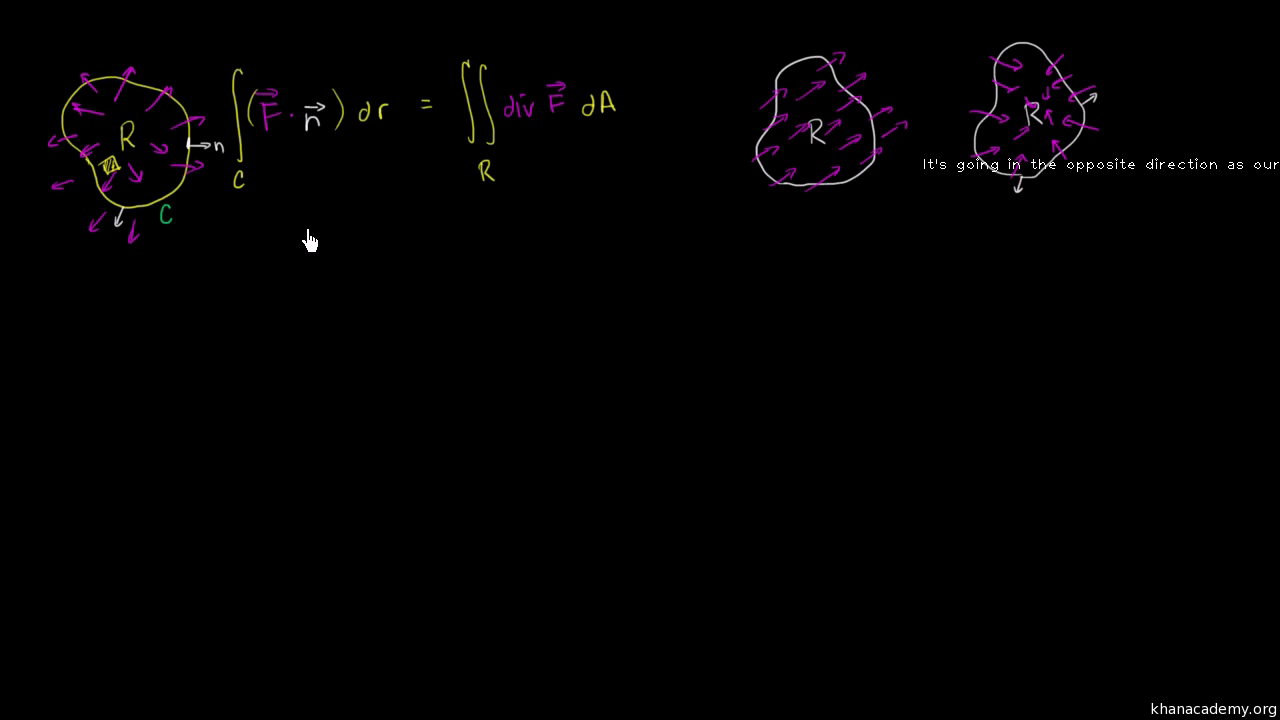 R
n
C
∫_C (F⃗ · n⃗) dr = ∬_R div F⃗ dA
R
R
It's going in the opposite direction as our
khanacademy.org